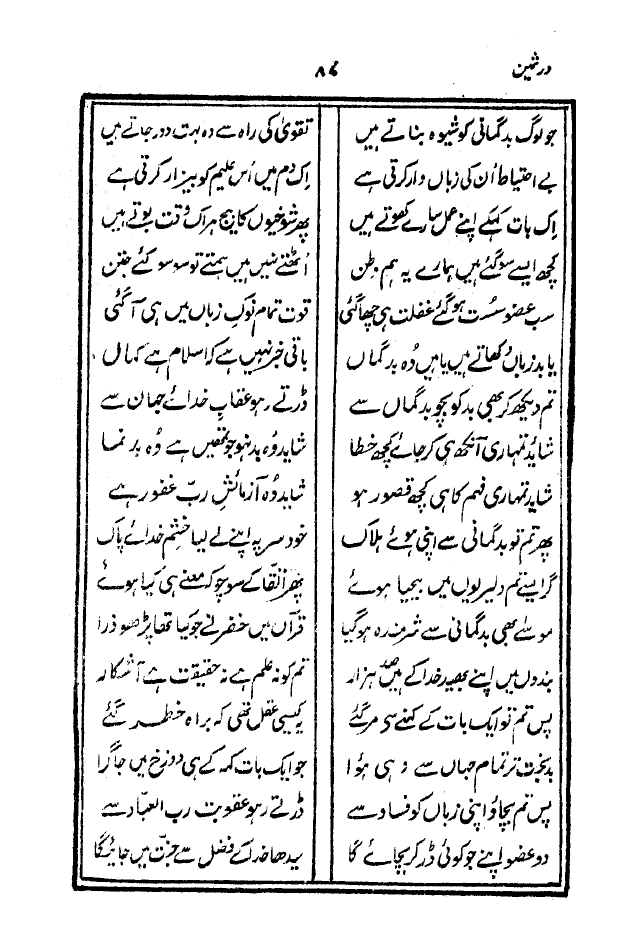 در ثمین ۸۷
جو لوگ بدگمانی کو شیوہ بناتے ہیں تقویٰ کی راہ سے وہ بہت دور جاتے ہیں
بے احتیاط اُن کی زباں وار کرتی ہے اِک دم میں اُس علیم کو بیزار کرتی ہے
اِک بات کہکے اپنے عمل سارے کھوتے ہیں پھر شوخیوں کا بیج ہر اک وقت بوتے ہیں
کچھ ایسے سو گئے ہیں ہمارے یہ ہم وطن اُٹھتے نہیں ہیں ہمنے تو سو سو کئے جتن
سب عضو سُست ہو گئے غفلت ہی چھا گئی قوت تمام نوکِ زباں میں ہی آ گئی
یا بد زباں دکھاتے ہیں یا ہیں وُہ بدگماں باقی خبر نہیں ہے کہ اسلام ہے کہاں
تم دیکھ کر بھی بد کو بچو بدگماں سے ڈرتے رہو عقابِ خدائے جہان سے
شاید تمہاری آنکھ ہی کر جائے کچھ خطا شاید وُہ بد نہ ہو جو تمھیں ہے وُہ بد نما
شاید تمہاری فہم کا ہی کچھ قصور ہو شاید وُہ آزمائشِ ربِّ غفور ہے
پھر تم تو بدگمانی سے اپنی ہوئے ہلاک خود سر پہ اپنے لے لیا خشمِ خدائے پاک
گر ایسے تم دلیریوں میں بیحیا ہوئے پھر اتّقا کے سوچو کہ معنے ہی کیا ہوئے
موسےٰ بھی بدگمانی سے شرمندہ ہو گیا قرآں میں خضر نے جو کیا تھا پڑھو ذرا
بندوں میں اپنے بھید خدا کے ہیں صد ہزار تم کو نہ علم ہے نہ حقیقت ہے آشکار
پس تم تو ایک بات کے کہنے سے مر گئے یہ کیسی عقل تھی کہ براہ خطر گئے
بدبخت تر تمام جہاں سے وہی ہوا جو ایک بات کہہ کے ہی دوزخ میں جا گرا
پس تم بچاؤ اپنی زباں کو فساد سے ڈرتے رہو عقوبت رب العباد سے
دو عضو اپنے جو کوئی ڈر کر بچائے گا سیدھا خدا کے فضل سے جنّت میں جائیگا